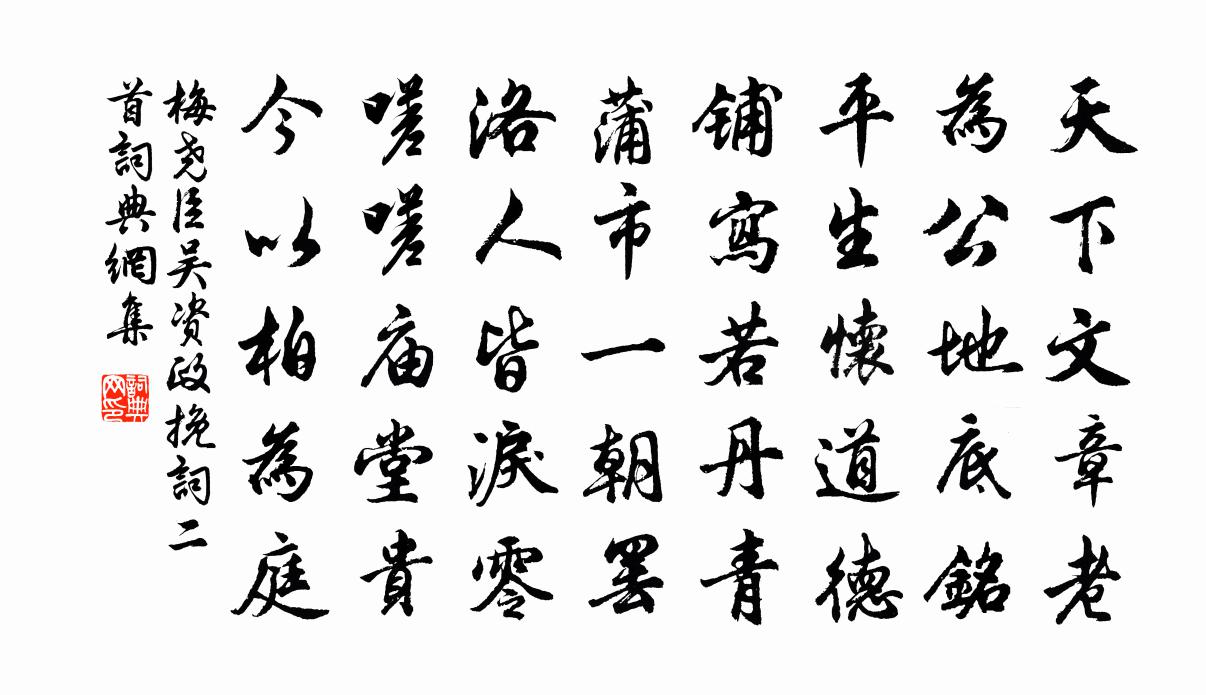 天下文章老
為公地底銘
平生懷道德
鋪寫若丹青
蒲市一朝罷
洛人皆淚零
嗟嗟庙堂貴
今以柏為庭
梅尧臣吴资政挽詞二
首詞典網集
詞典
网印